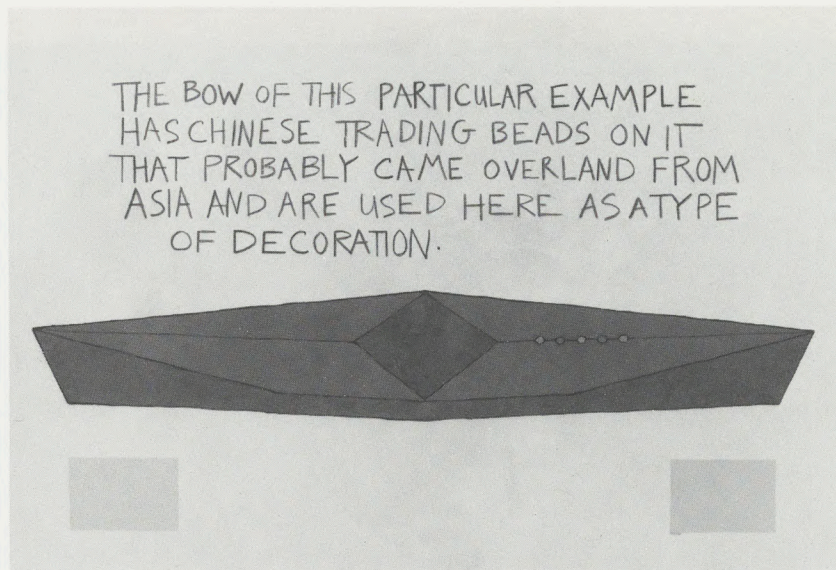 THE BOW OF THIS PARTICULAR EXAMPLE
HAS CHINESE TRADING BEADS ON IT
THAT PROBABLY CAME OVERLAND FROM
ASIA AND ARE USED HERE AS A TYPE
OF DECORATION.